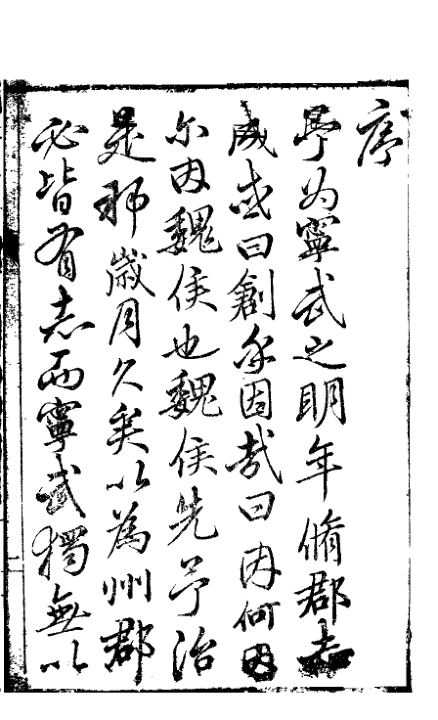 序
予为寧武之明年脩郡志
成或曰創尔因哉曰因何因
尔因魏侯也魏侯先予治
是邦歲月久矣以為州郡
必皆有志而寧武獨無以